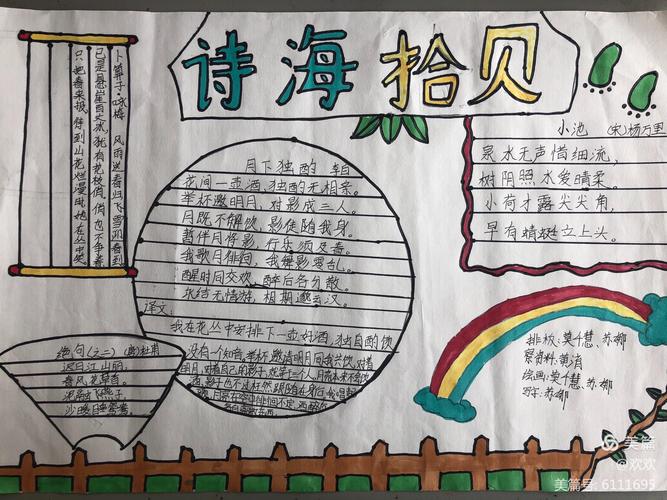 诗海拾贝
卜算子·咏梅 风雨送春归,飞雪迎春到
已是悬崖百丈冰,犹有花枝俏。俏也不争春
只把春来报。待到山花烂漫时她在丛中笑
月下独酌 李白
花间一壶酒,独酌无相亲。
举杯邀明月,对影成三人。
月既不解饮,影徒随我身。
暂伴月将影,行乐须及春。
我歌月徘徊,我舞影零乱。
醒时同交欢,醉后各分散。
永结无情游,相期邈云汉。
译文:
我在花丛中安排下一壶好酒,独自酌饮
没有个知音,举杯邀请明月同我共饮,对着
小池 (宋)杨万里
泉水无声惜细流,
树阴照水爱晴柔。
小荷才露尖尖角,
早有蜻蜓立上头。
绝句(之二) (唐)杜甫
迟日江山丽,
春风花草香。
排板:莫千慧、苏娜
察资料:黄消
绘画:莫千慧、苏娜
写字:苏娜
美篇
@欢欢
美篇号: 6111695